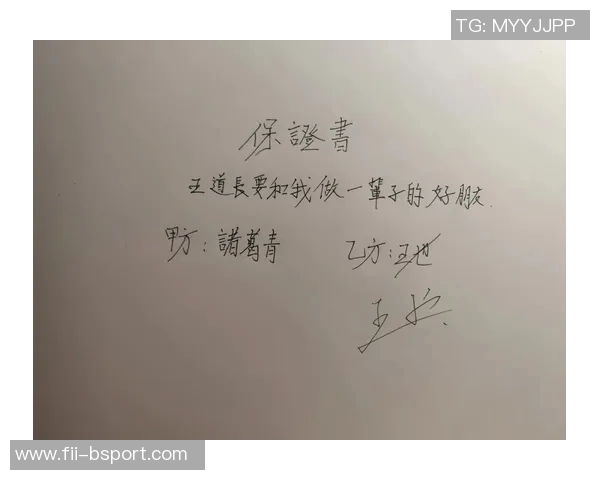 TG: MYYJJPP
保證書
王道長要和我做一輩子的好朋友.
甲方:諸葛青 乙方:王也
王也
www.fii-bsport.com